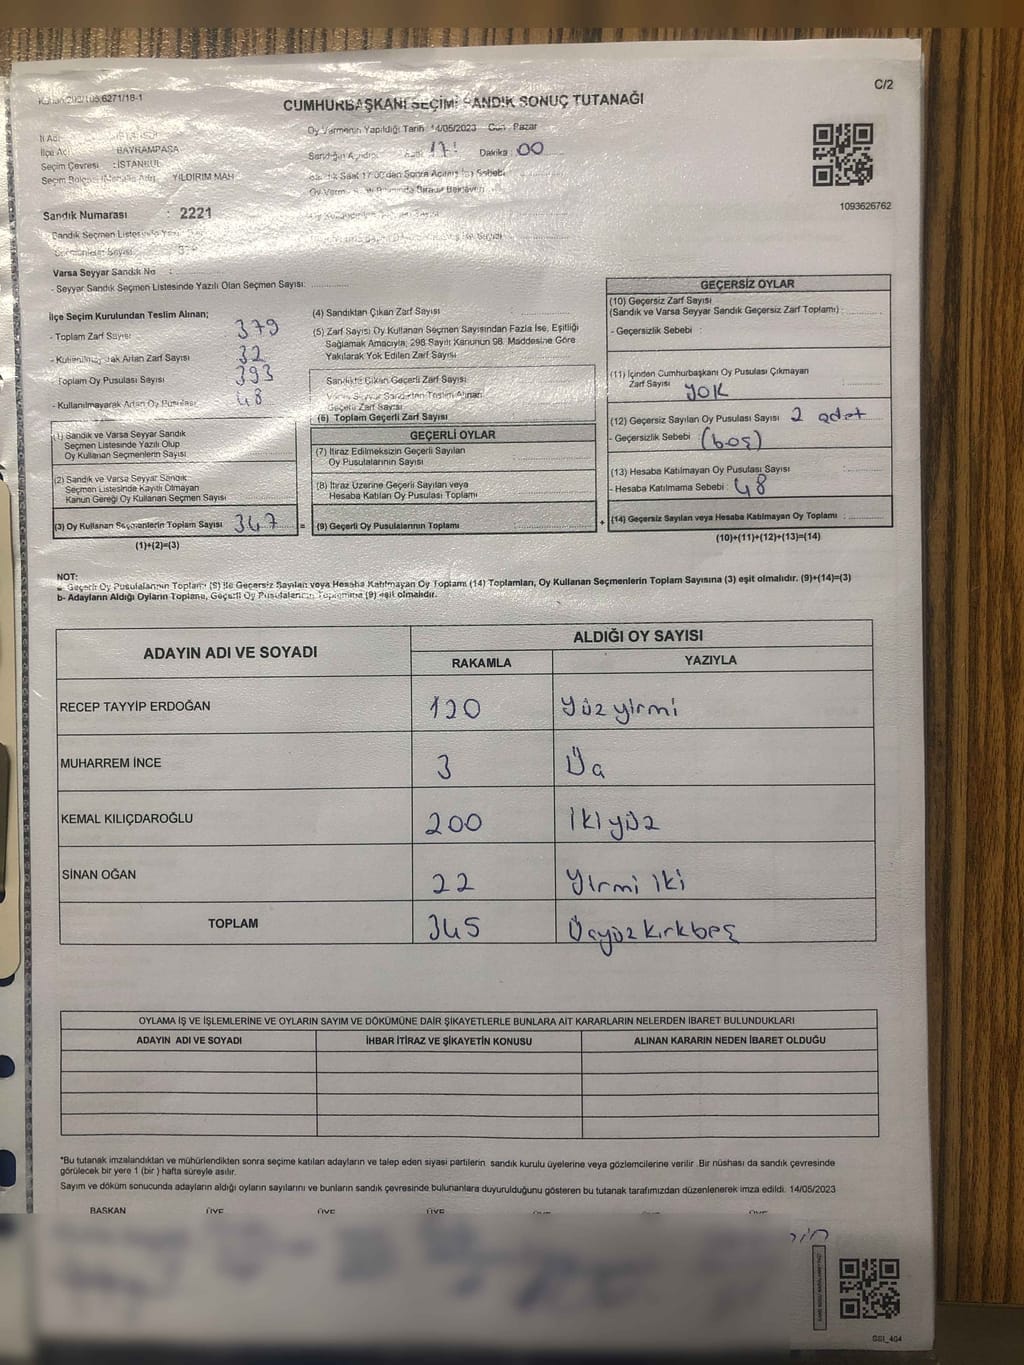 C/2
CUMHURBAŞKANI SEÇİMİ SANDIK SONUÇ TUTANAĞI
Oy Vermenin Yapıldığı Tarih 14/05/2023 Gün Pazar
17 Dakika : 00
İl Adı
İlçe Adı BAYRAMPAŞA
Seçim Çevresi : İSTANBUL
YILDIRIM MAH
1093626762
Sandık Numarası : 2221
Varsa Seyyar Sandık No :
- Seyyar Sandık Seçmen Listesinde Yazılı Olan Seçmen Sayısı:
İlçe Seçim Kurulundan Teslim Alınan;
- Toplam Zarf Sayısı 379
- Kullanılmayarak Artan Zarf Sayısı 32
- Toplam Oy Pusulası Sayısı 393
- Kullanılmayarak Artan Oy Pusulası 48
(1) Sandık ve Varsa Seyyar Sandık
Seçmen Listesinde Yazılı Olup
Oy Kullanan Seçmenlerin Sayısı
(2) Sandık ve Varsa Seyyar Sandık
Seçmen Listesinde Kayıtlı Olmayan
Kanun Gereği Oy Kullanan Seçmen Sayısı
(3) Oy Kullanan Seçmenlerin Toplam Sayısı 347 =
(1)+(2)=(3)
(4) Sandıktan Çıkan Zarf Sayısı
(5) Zarf Sayısı Oy Kullanan Seçmen Sayısından Fazla İse, Eşitliği
Sağlamak Amacıyla, 298 Sayılı Kanunun 98. Maddesine Göre
Yakılarak Yok Edilen Zarf Sayısı
Sandıkta Çıkan Geçerli Zarf Sayısı
Geçerli Zarf Sayısı
(6) Toplam Geçerli Zarf Sayısı
GEÇERLİ OYLAR
(7) İtiraz Edilmeksizin Geçerli Sayılan
Oy Pusulalarının Sayısı
(8) İtiraz Üzerine Geçerli Sayılan veya
Hesaba Katılan Oy Pusulası Toplamı
(9) Geçerli Oy Pusulalarının Toplamı +
GEÇERSİZ OYLAR
(10) Geçersiz Zarf Sayısı
(Sandık ve Varsa Seyyar Sandık Geçersiz Zarf Toplamı) :
- Geçersizlik Sebebi :
(11) İçinden Cumhurbaşkanı Oy Pusulası Çıkmayan
Zarf Sayısı YOK
(12) Geçersiz Sayılan Oy Pusulası Sayısı 2 adet
- Geçersizlik Sebebi : (boş)
(13) Hesaba Katılmayan Oy Pusulası Sayısı
- Hesaba Katılmama Sebebi : 48
(14) Geçersiz Sayılan veya Hesaba Katılmayan Oy Toplamı :
(10)+(11)+(12)+(13)=(14)
NOT:
a- Geçerli Oy Pusulalarının Toplamı (9) ile Geçersiz Sayılan veya Hesaba Katılmayan Oy Toplamı (14) Toplamları, Oy Kullanan Seçmenlerin Toplam Sayısına (3) eşit olmalıdır. (9)+(14)=(3)
b- Adayların Aldığı Oyların Toplamı, Geçerli Oy Pusulalarının Toplamına (9) eşit olmalıdır.
ADAYIN ADI VE SOYADI
ALDIĞI OY SAYISI
RAKAMLA YAZIYLA
RECEP TAYYİP ERDOĞAN 120 Yüz yirmi
MUHARREM İNCE 3 Üç
KEMAL KILIÇDAROĞLU 200 İkiyüz
SİNAN OĞAN 22 Yirmi iki
TOPLAM 345 Üçyüz kırkbeş
OYLAMA İŞ VE İŞLEMLERİNE VE OYLARIN SAYIM VE DÖKÜMÜNE DAİR ŞİKAYETLERLE BUNLARA AİT KARARLARIN NELERDEN İBARET BULUNDUKLARI
ADAYIN ADI VE SOYADI İHBAR İTİRAZ VE ŞİKAYETİN KONUSU ALINAN KARARIN NEDEN İBARET OLDUĞU
*Bu tutanak imzalandıktan ve mühürlendikten sonra seçime katılan adayların ve talep eden siyasi partilerin sandık kurulu üyelerine veya gözlemcilerine verilir. Bir nüshası da sandık çevresinde
görülecek bir yere 1 (bir ) hafta süreyle asılır.
Sayım ve döküm sonucunda adayların aldığı oyların sayılarını ve bunların sandık çevresinde bulunanlara duyurulduğunu gösteren bu tutanak tarafımızdan düzenlenerek imza edildi. 14/05/2023
BAŞKAN ÜYE ÜYE ÜYE ÜYE ÜYE ÜYE